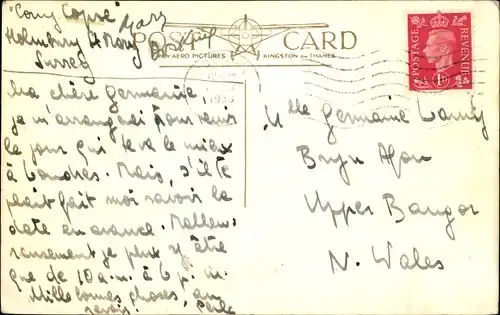 "Cony Copse"
Holmbury St Mary
Surrey
Dorking
POST CARD
AERO PICTURES KINGSTON on THAMES
POSTAGE REVENUE
1D
Ma chère Germaine,
je m'arrangerai pour venir
le jour qui te va le mieux
à Londres. Mais, s'il te
plait fait moi savoir la
date en avance. Malheu-
reusement je peux y être
que de 10 a.m. à 6 p.m.
Mille bonnes choses, au
revoir.
Mlle Germaine
Bryn Afon
Upper Bangor
N. Wales